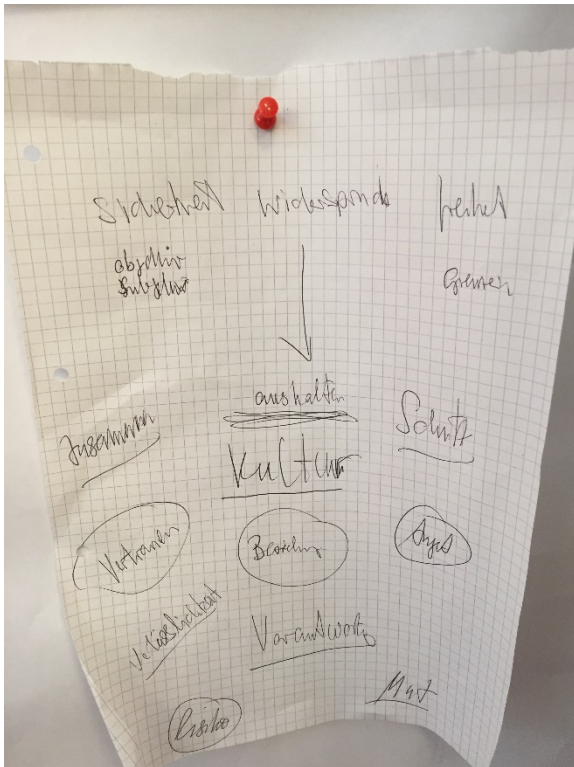 Sicherheit Widerspruch Freiheit
objektiv
subjektiv Grenzen
aushalten
Zusammen Schutz
Kultur
Vertrauen Beziehung Angst
Verlässlichkeit Verantwortung
Mut
Risiko